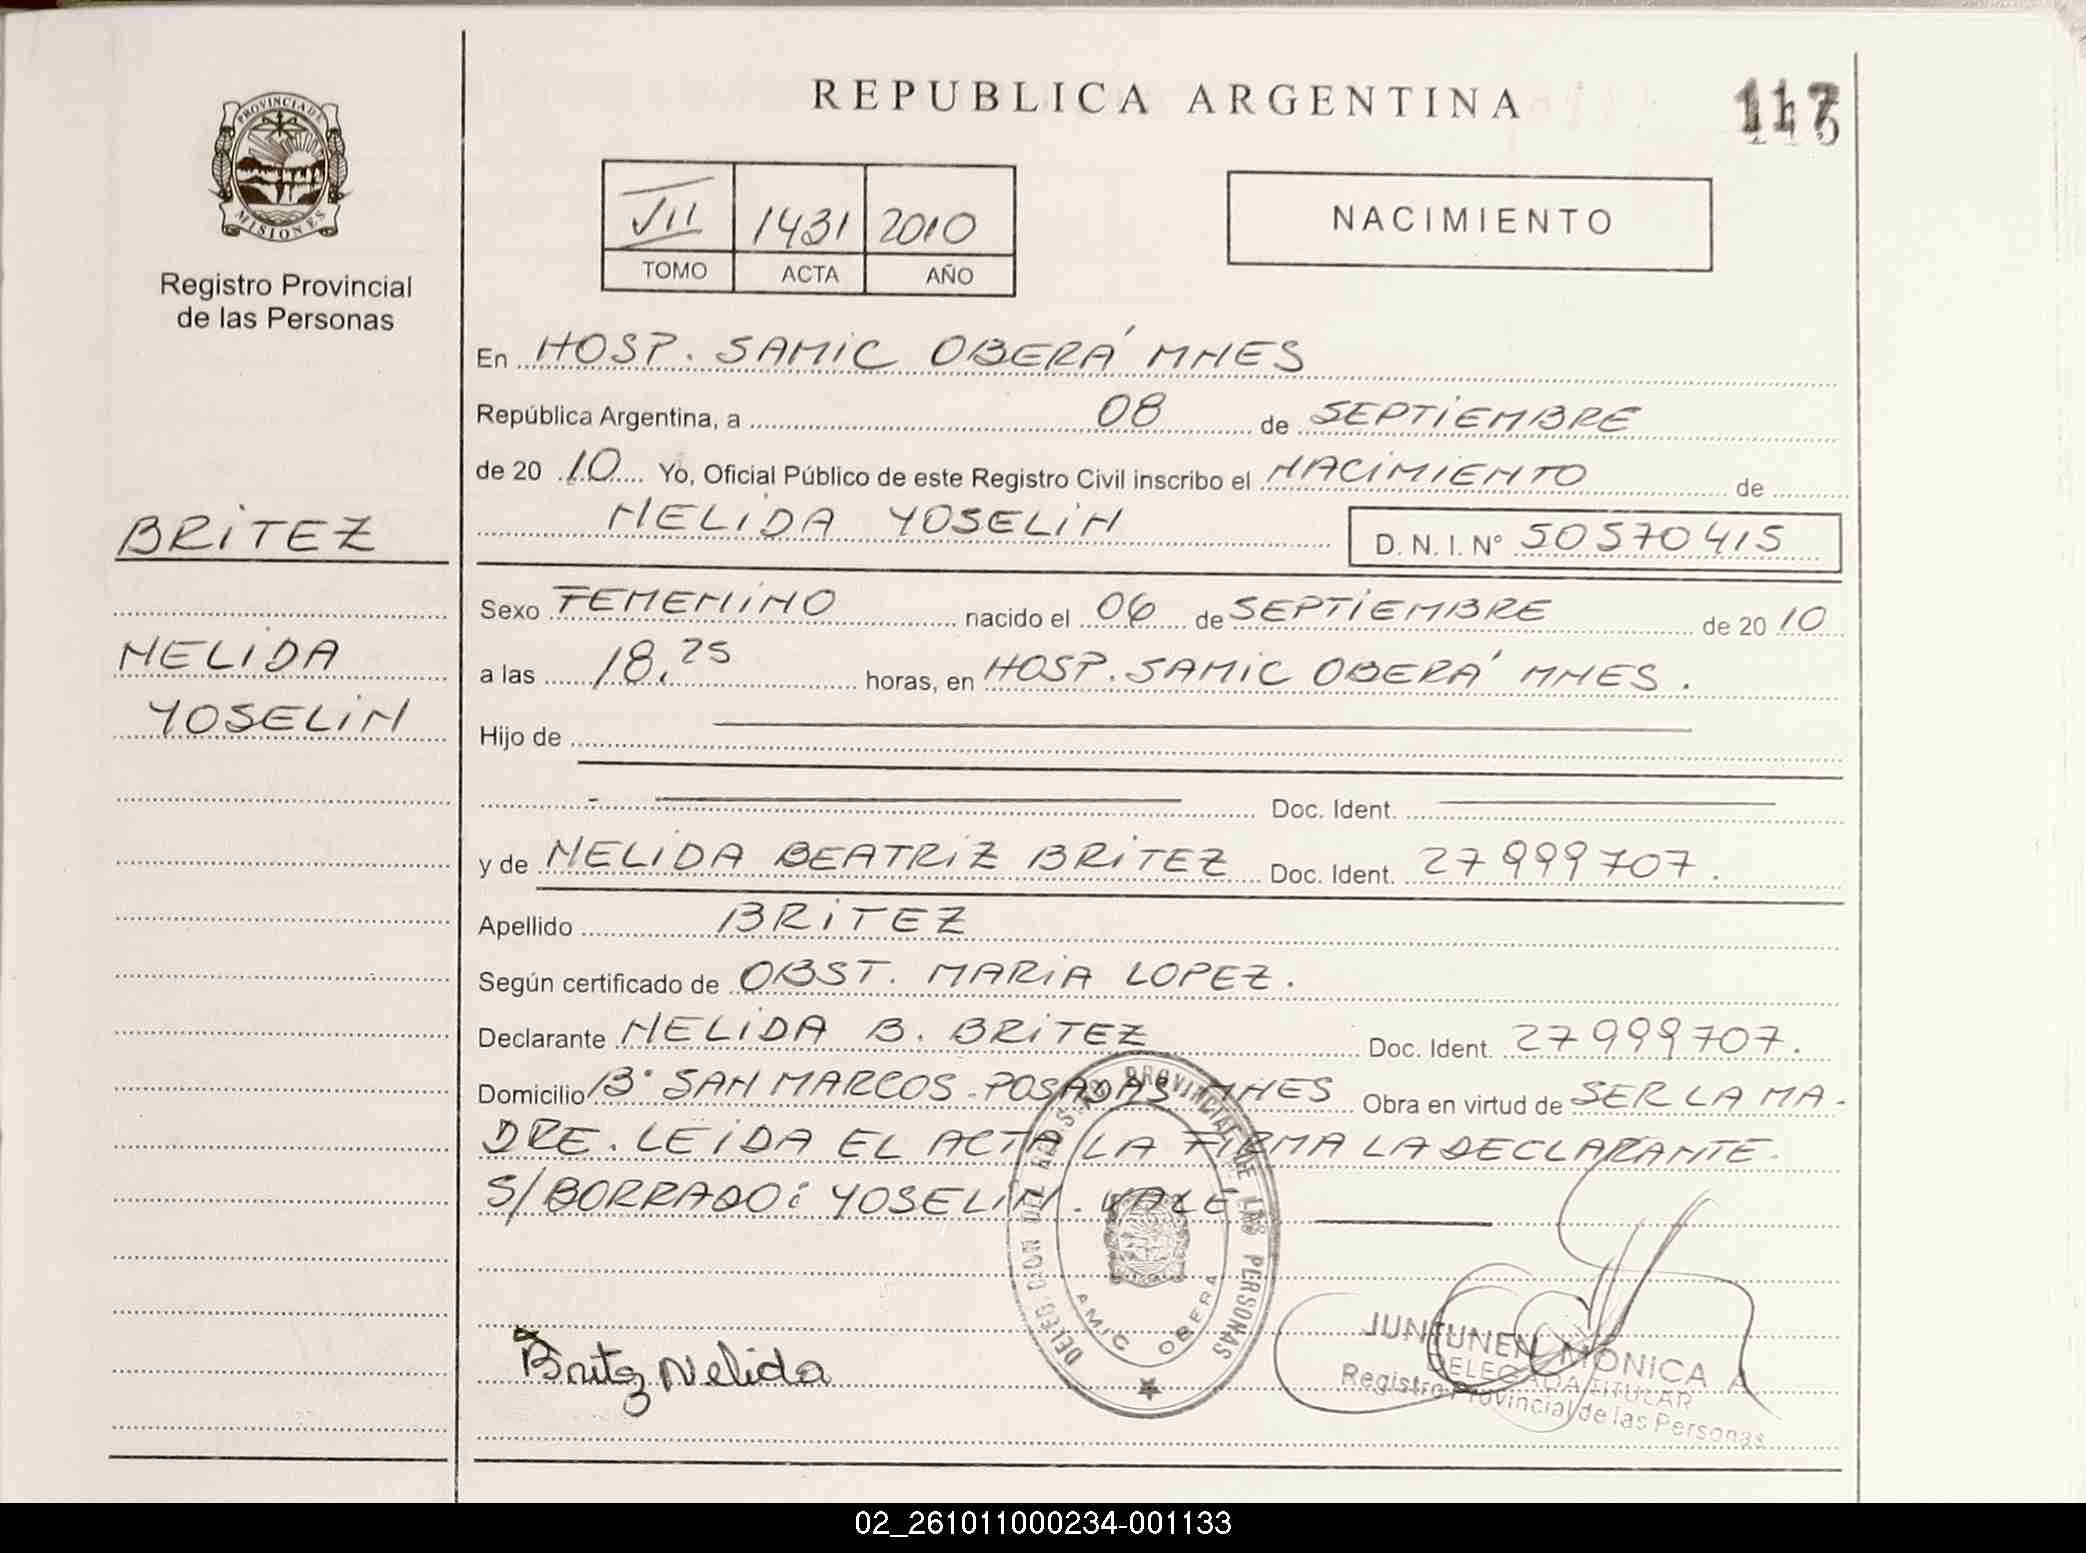 REPUBLICA ARGENTINA
PROVINCIA DE
MISIONES
Registro Provincial
de las Personas
VII 1431 2010
TOMO ACTA AÑO
NACIMIENTO
En HOSP. SAMIC OBERÁ MNES
República Argentina, a 08 de SEPTIEMBRE
de 20 10 Yo, Oficial Público de este Registro Civil inscribo el NACIMIENTO de
NELIDA YOSELIN D. N. I. N° 50570415
BRITEZ
NELIDA
YOSELIN
Sexo FEMENINO nacido el 06 de SEPTIEMBRE de 20 10
a las 18.25 horas, en HOSP. SAMIC OBERÁ MNES.
Hijo de
Doc. Ident.
y de NELIDA BEATRIZ BRITEZ Doc. Ident. 27999707.
Apellido BRITEZ
Según certificado de OBST. MARIA LOPEZ.
Declarante NELIDA B. BRITEZ Doc. Ident. 27999707.
Domicilio B° SAN MARCOS - POSADAS MNES Obra en virtud de SER LA MA-
DRE. LEIDA EL ACTA LA FIRMA LA DECLARANTE.
S/BORRADO: YOSELIN. VALE
PROVINCIAL DE LAS PERSONAS
SAMIC OBERA
Britez Nelida
JUNTUNEN MONICA A
DELEGADA TITULAR
Registro Provincial de las Personas
02_261011000234-001133